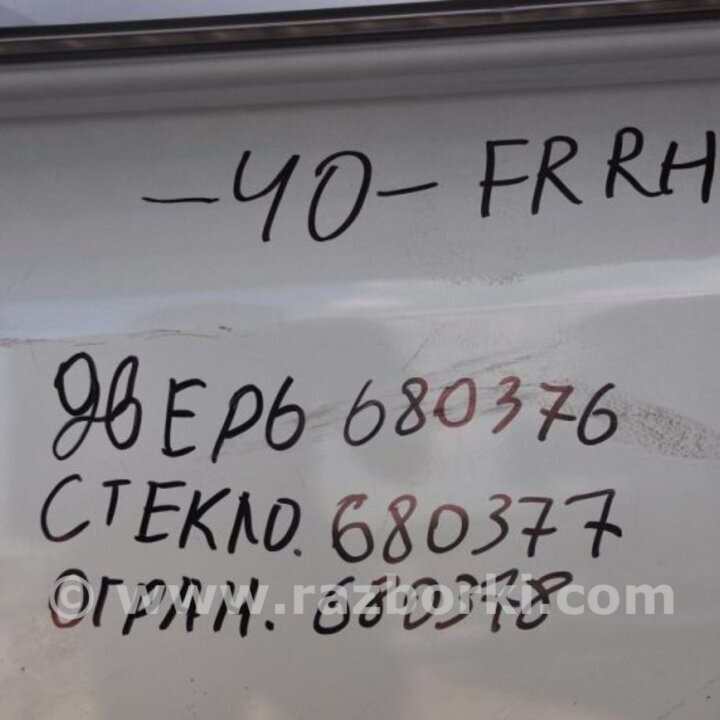 -40- FR RH
дВЕРЬ 680376
СТЕКЛО. 680377
ОГРАН. 680378
© www.razborki.com